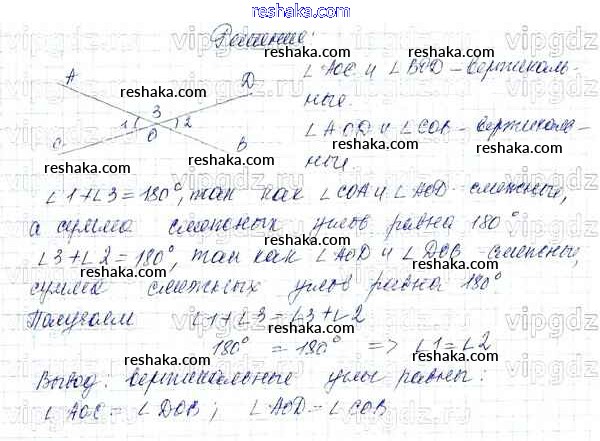 reshaka.com
Решение:
∠AOC и ∠BOD – вертикаль-
ные.
∠AOD и ∠COB – вертикаль-
ные.
A
D
3
1
2
O
C
B
∠1+∠3=180°, так как ∠COA и ∠AOD смежные,
а сумма смежных углов равна 180°
∠3+∠2=180°, так как ∠AOD и ∠DOB – смежные,
сумма смежных углов равна 180°
Получаем ∠1+∠3=∠3+∠2
180° = 180° => ∠1=∠2
Вывод: вертикальные углы равны:
∠AOC = ∠DOB; ∠AOD = ∠COB
reshaka.com
reshaka.com
reshaka.com
reshaka.com
reshaka.com
reshaka.com
reshaka.com
reshaka.com
reshaka.com
reshaka.com
reshaka.com
reshaka.com
vipgdz
vipgdz
vipgdz